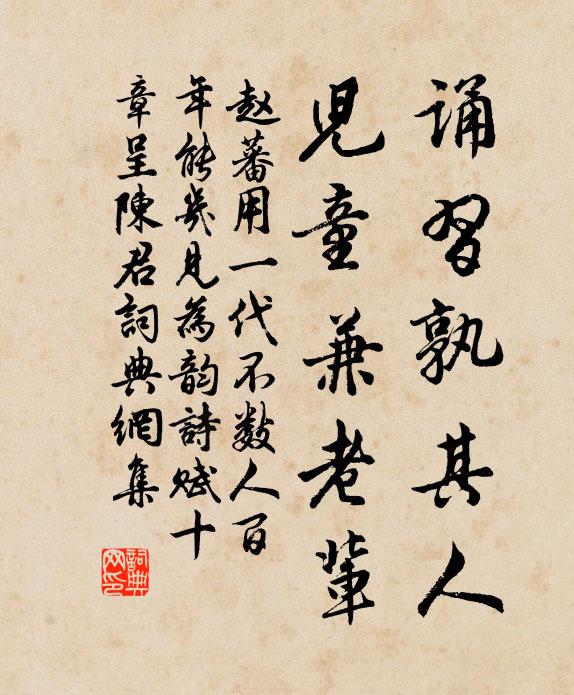 誦習孰其人
兒童兼老輩
赵蕃用一代不数人百
年能幾見為韵詩賦十
章呈陳君詞典網集
詞典网印